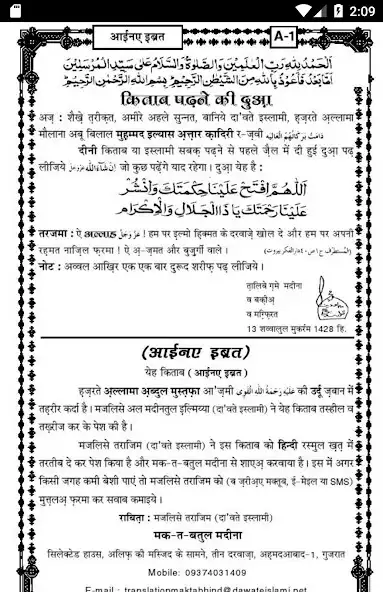 2:09
आईनए इब्रत
A-1
اَلْحَمْدُ لِلّٰهِ رَبِّ الْعٰلَمِیْنَ وَالصَّلٰوةُ وَالسَّلَامُ عَلٰی سَیِّدِ الْمُرْسَلِیْنَ
اَمَّا بَعْدُ فَاَعُوْذُ بِاللّٰهِ مِنَ الشَّیْطٰنِ الرَّجِیْمِ بِسْمِ اللّٰهِ الرَّحْمٰنِ الرَّحِیْمِ
किताब पढ़ने की दुआ
अज़ : शैख़े त़रीक़त, अमीरे अहले सुन्नत, बानिये दा'वते इस्लामी, ह़ज़रते अ़ल्लामा
मौलाना अबू बिलाल मुह़म्मद इल्यास अ़त्त़ार क़ादिरी र-ज़वी دَامَتْ بَرَكَاتُهُمُ الْعَالِیَه
दीनी किताब या इस्लामी सबक़ पढ़ने से पहले ज़ैल में दी हुई दुआ़ पढ़
लीजिये اِنْ شَآءَ اللّٰه عَزَّوَجَلَّ जो कुछ पढ़ेंगे याद रहेगा। दुआ़ येह है :
اَللّٰهُمَّ افْتَحْ عَلَیْنَا حِكْمَتَكَ وَانْشُرْ
عَلَیْنَا رَحْمَتَكَ یَا ذَاالْجَلَالِ وَالْاِكْرَام
तरजमा : ऐ अल्लाह عَزَّوَجَلَّ ! हम पर इ़ल्मो ह़िक्मत के दरवाज़े खोल दे और हम पर अपनी
रह़मत नाज़िल फ़रमा ! ऐ अ़-ज़मत और बुज़ुर्गी वाले। (المُستطرَف ج١ص٤٠دارالفكر بيروت)
नोट : अव्वल आख़िर एक एक बार दुरूद शरीफ़ पढ़ लीजिये।
त़ालिबे ग़मे मदीना
व बक़ीअ़
व मग़्फ़िरत
13 शव्वालुल मुकर्रम 1428 हि.
(आईनए इब्रत)
येह किताब ( आईनए इब्रत )
ह़ज़रते अ़ल्लामा अ़ब्दुल मुस्त़फ़ा आ'ज़मी عَلَیْهِ رَحْمَةُ اللّٰهِ الْقَوِی की उर्दू ज़बान में
तह़रीर कर्दा है। मजलिसे अल मदीनतुल इ़ल्मिय्या (दा'वते इस्लामी) ने येह किताब तस्हील व
तख़्रीज कर के पेश की है।
मजलिसे तराजिम (दा'वते इस्लामी) ने इस किताब को हिन्दी रस्मुल ख़त़ में
तरतीब दे कर पेश किया है और मक-त-बतुल मदीना से शाएअ़ करवाया है। इस में अगर
किसी जगह कमी बेशी पाएं तो मजलिसे तराजिम को (ब ज़रीअ़ए मक्तूब, ई-मेइल या SMS)
मुत़्त़लअ़ फ़रमा कर सवाब कमाइये।
राबित़ा : मजलिसे तराजिम (दा'वते इस्लामी)
मक-त-बतुल मदीना
सिलेक्टेड हाउस, अलिफ़ की मस्जिद के सामने, तीन दरवाज़ा, अह़मदआबाद-1, गुजरात
Mobile: 09374031409
E-mail : translationmaktabhind@dawateislami.net